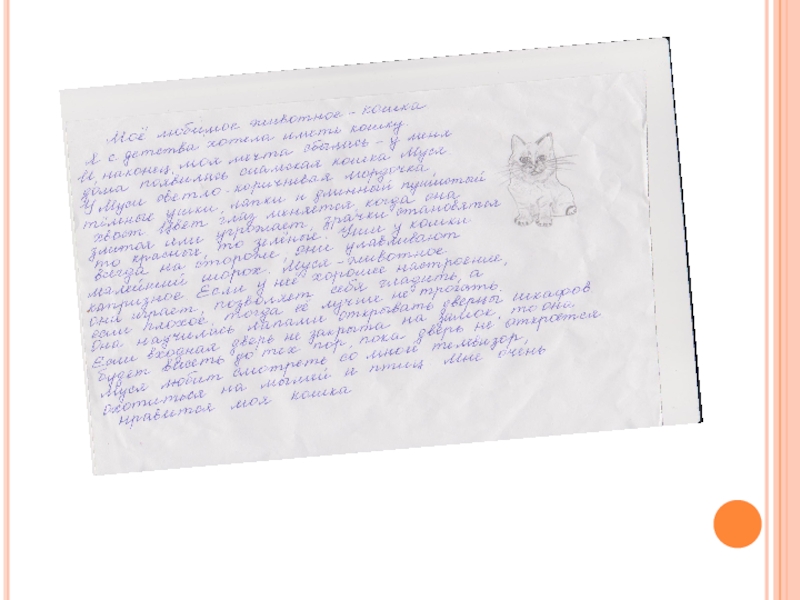 Моё любимое животное - кошка
Я с детства хотела иметь кошку.
И, наконец, моя мечта сбылась - у меня
дома появилась сиамская кошка Муся.
У Муси светло-коричневая мордочка
тёмные ушки, лапки и длинный пушистый
хвост. Цвет глаз меняется когда она
злится или угрожает, зрачки становятся
то красные, то зелёные. Уши у кошки
всегда на стороже, они улавливают
малейший шорох. Муся - животное
капризное. Если у неё хорошее настроение,
она играет, позволяет себя гладить, а
если плохое, тогда её лучше не трогать.
Она научилась лапами открывать дверцы шкафов.
Если входная дверь не закрыта на замок, то она
будет висеть до тех пор, пока дверь не откроется
Муся любит смотреть со мной телевизор,
охотиться на мышей и птиц. Мне очень
нравится моя кошка